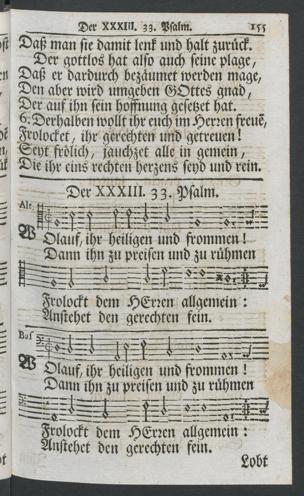 Der XXXIII. 33. Psalm. 155
Daß man sie damit lenk und halt zurück.
Der gottlos hat also auch seine plage,
Daß er dardurch bezäumet werden mage,
Den aber wird umgeben GOttes gnad,
Der auf ihn sein hoffnung gesetzet hat.
6. Derhalben wollt ihr euch im Herren freuē,
Frolocket, ihr gerechten und getreuen!
Seyt frölich, jauchzet alle in gemein,
Die ihr eins rechten herzens seyd und rein.
Der XXXIII. 33. Psalm.
Alt.
Wolauf, ihr heiligen und frommen!
Dann ihn zu preisen und zu rühmen
Frolockt dem HErren allgemein:
Anstehet den gerechten fein.
Baß
Wolauf, ihr heiligen und frommen!
Dann ihn zu preisen und zu rühmen
Frolockt dem HErren allgemein:
Anstehet den gerechten fein.
Lobt